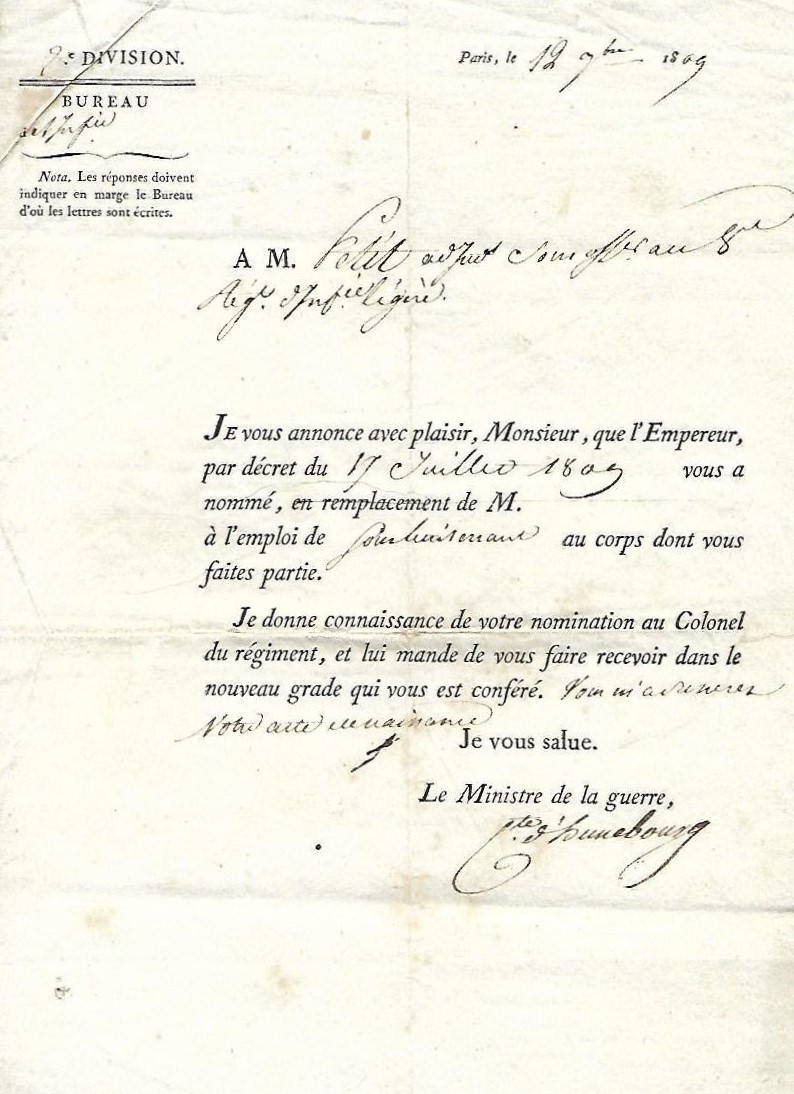 2.e DIVISION.
BUREAU
de l'Inf.ie
Nota. Les réponses doivent
indiquer en marge le Bureau
d'où les lettres sont écrites.
Paris, le 12 7bre 1809
A M. Petit adjud.t Sous off.er au 8me
Rég.t d'Inf.ie légère.
JE vous annonce avec plaisir, Monsieur, que l'Empereur,
par décret du 17 Juillet 1809 vous a
nommé, en remplacement de M.
à l'emploi de Sous lieutenant au corps dont vous
faites partie.
Je donne connaissance de votre nomination au Colonel
du régiment, et lui mande de vous faire recevoir dans le
nouveau grade qui vous est conféré. Vous m'adresserez
Votre acte de naissance
Je vous salue.
Le Ministre de la guerre,
Cte. d'hunebourg